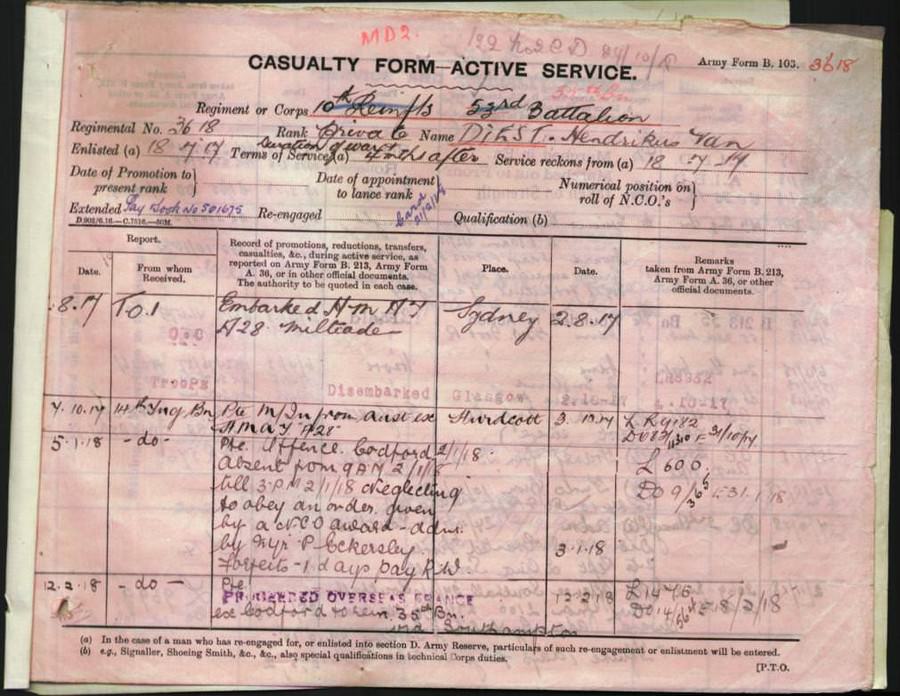 MD2.
CASUALTY FORM—ACTIVE SERVICE.
Army Form B. 103. 3618
Regiment or Corps 10th Reinfts 53rd Battalion
Regimental No. 3618 Rank Private Name DIEST. Hendrikus Van
Enlisted (a) 18 7 17 Terms of Service (a) Duration of war & 4 mth after Service reckons from (a) 18 7 17
Date of Promotion to present rank } Date of appointment to lance rank } Numerical position on roll of N.C.O.'s }
Extended Pay Book No 501675 Re-engaged Qualification (b)
Report. Record of promotions, reductions, transfers, casualties, &c., during active service, as reported on Army Form B. 213, Army Form A. 36, or in other official documents. The authority to be quoted in each case. Place. Date. Remarks taken from Army Form B. 213, Army Form A. 36, or other official documents.
Date. From whom Received.
.8.17 Embarked Sydney 2.8.17
A28 Miltiade
Troops Disembarked Glasgow
7.10.17 14th Trng Bn Pte M/In from Aust ex Hurdcott 3.10.17
5.1.18 -do- Pte Offence Codford 2/1/18.
Absent from 9 AM 2/1/18 L 600.
till 3 PM 2/1/18 Neglecting
to obey an order given
by a NCO award - adm.
by Mjr P Eckersley 3.1.18
Forfeits 1 days pay RW
12.2.18 -do- Pte 12.2.18
PROCEEDED OVERSEAS FRANCE
ex Codford to rein. 35th Bn.
via Southampton
(a) In the case of a man who has re-engaged for, or enlisted into section D. Army Reserve, particulars of such re-engagement or enlistment will be entered.
(b) e.g., Signaller, Shoeing Smith, &c., &c., also special qualifications in technical Corps duties.
[P.T.O.